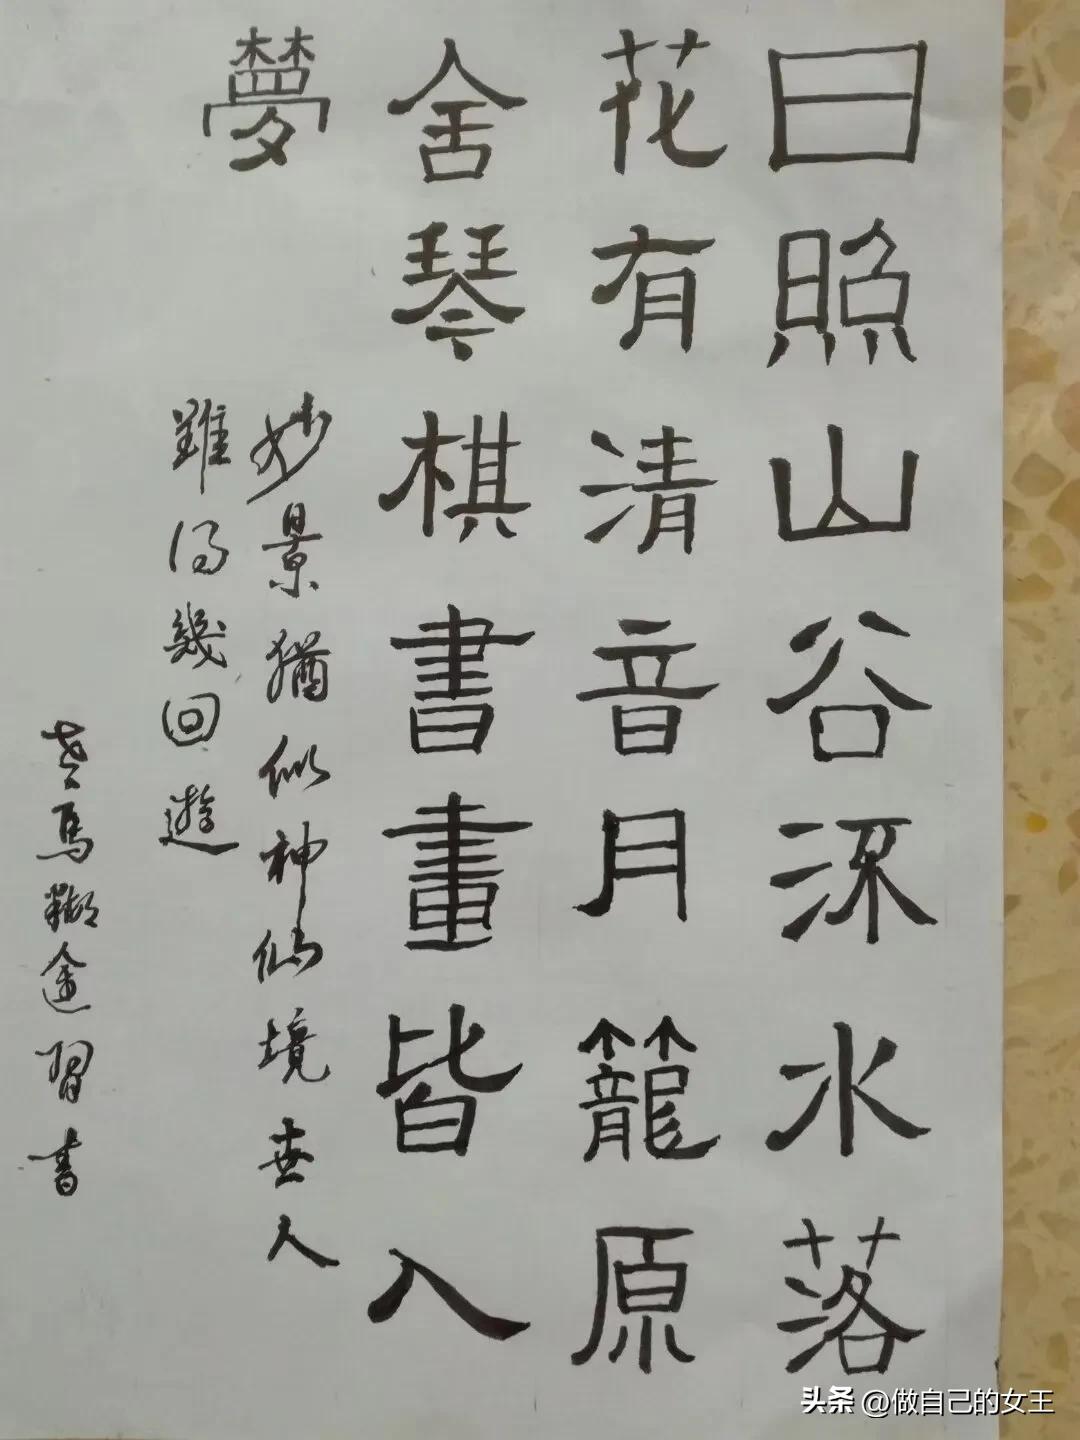 日照山谷深水落
花有清音月籠原
舍琴棋書畫皆入
夢
妙景猶似神仙境世人
難得幾回遊
老馬糊途習書
头条 @做自己的女王